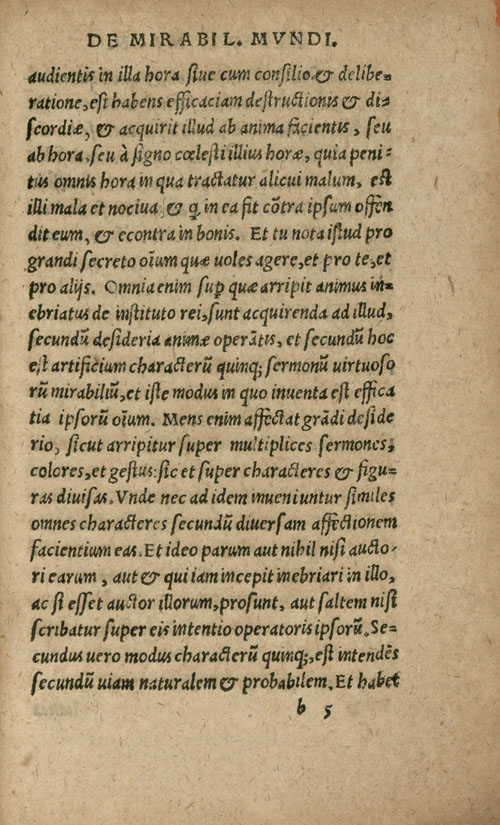 DE MIRABIL. MVNDI.
audientis in illa hora siue cum consilio & delibe=
ratione, est habens efficaciam destructionis & di=
scordiæ, & acquirit illud ab anima facientis, seu
ab hora, seu à signo cœlesti illius horæ, quia peni=
tus omnis hora in qua tractatur alicui malum, est
illi mala et nociua, & q in ea fit cõtra ipsum offen
dit eum, & econtra in bonis. Et tu nota istud pro
grandi secreto oĩum quæ uoles agere, et pro te, et
pro alijs. Omnia enim sup quæ arripit animus in=
ebriatus de instituto rei, sunt acquirenda ad illud,
secundũ desideria animæ operãtis, et secundũ hoc
est artificium characterũ quinq; sermonũ uirtuoso
rũ mirabiliũ, et iste modus in quo inuenta est effica
tia ipsorũ oĩum. Mens enim affectat grãdi deside
rio, sicut arripitur super multiplices sermones,
colores, et gestus: sic et super characteres & figu=
ras diuisas. Vnde nec ad idem inueniuntur similes
omnes characteres secundũ diuersam affectionem
facientium eas. Et ideo parum aut nihil nisi aucto=
ri earum, aut & qui iam incepit inebriari in illo,
ac si esset auctor illorum, prosunt, aut saltem nisi
scribatur super eis intentio operatoris ipsorũ. Se=
cundus uero modus characterũ quinq;, est intendẽs
secundũ uiam naturalem & probabilem. Et habet
b 5